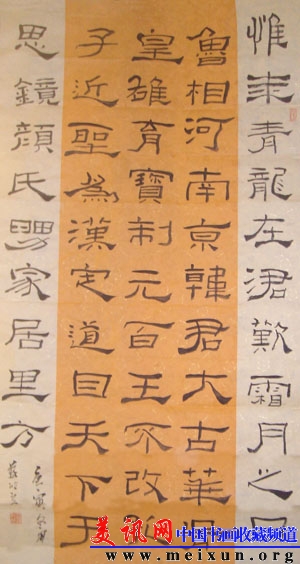 惟永青龍在涒歎霜月之
魯相河南京韓君大古華
皇雄育寶制元百王不改孔
子近聖為漢定道自天下于
思鏡顏氏舅家居里方
庚寅
美訊網 中国书画收藏频道
www.meixun.org